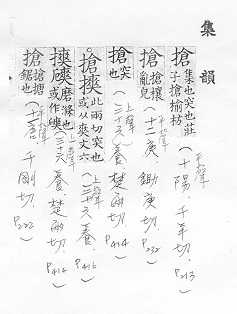 集韻
搶 集也突也莊子搶榆枋 (平聲 十陽. 千羊切. P213
搶 搶攘亂皃 (平聲 十二庚. 鋤庚切. P232
搶 突也 (上聲 三十六養 楚兩切. P414
搶摤 此兩切突也或从爽文六 (上聲 三十六養. P416
磢 磨滌也或作 (上聲 三十六養 楚兩切. P414
搶 搶搶鋸也 千剛切. P222